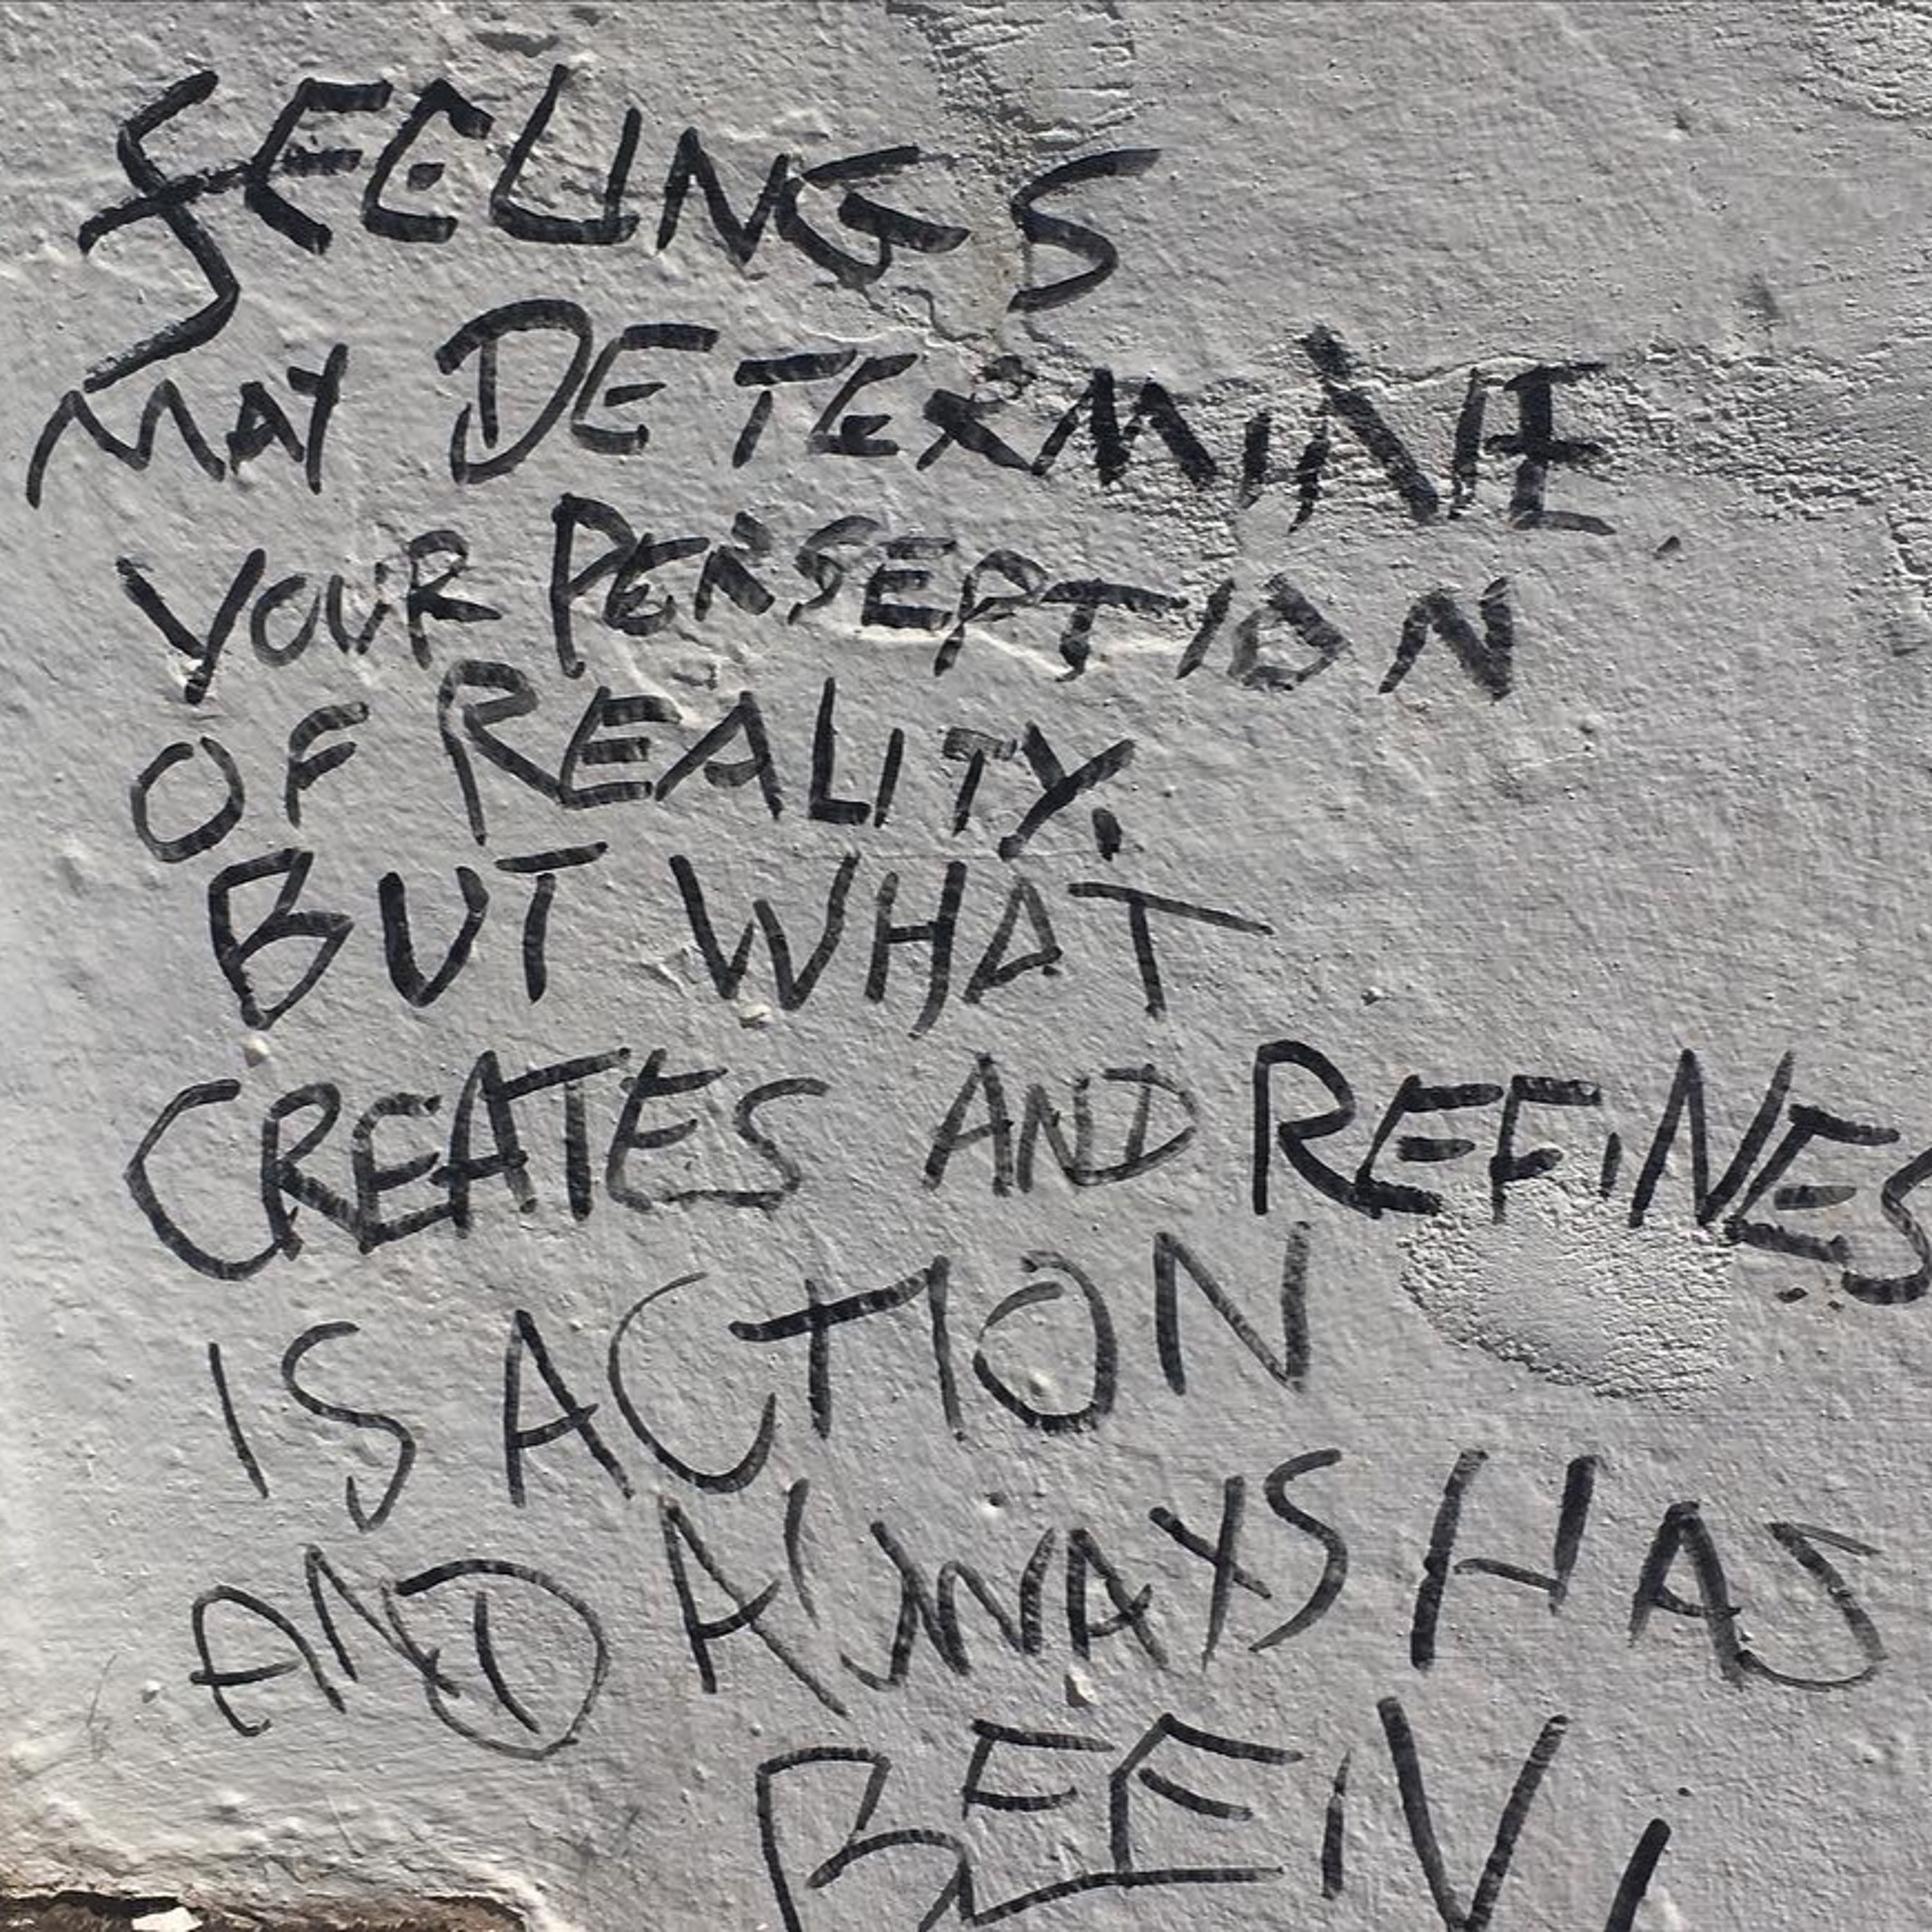 FEELINGS
MAY DETERMINE
YOUR PERSEPTION
OF REALITY.
BUT WHAT
CREATES AND REFINES
IS ACTION
AND AlWAYS HAS
BEEN